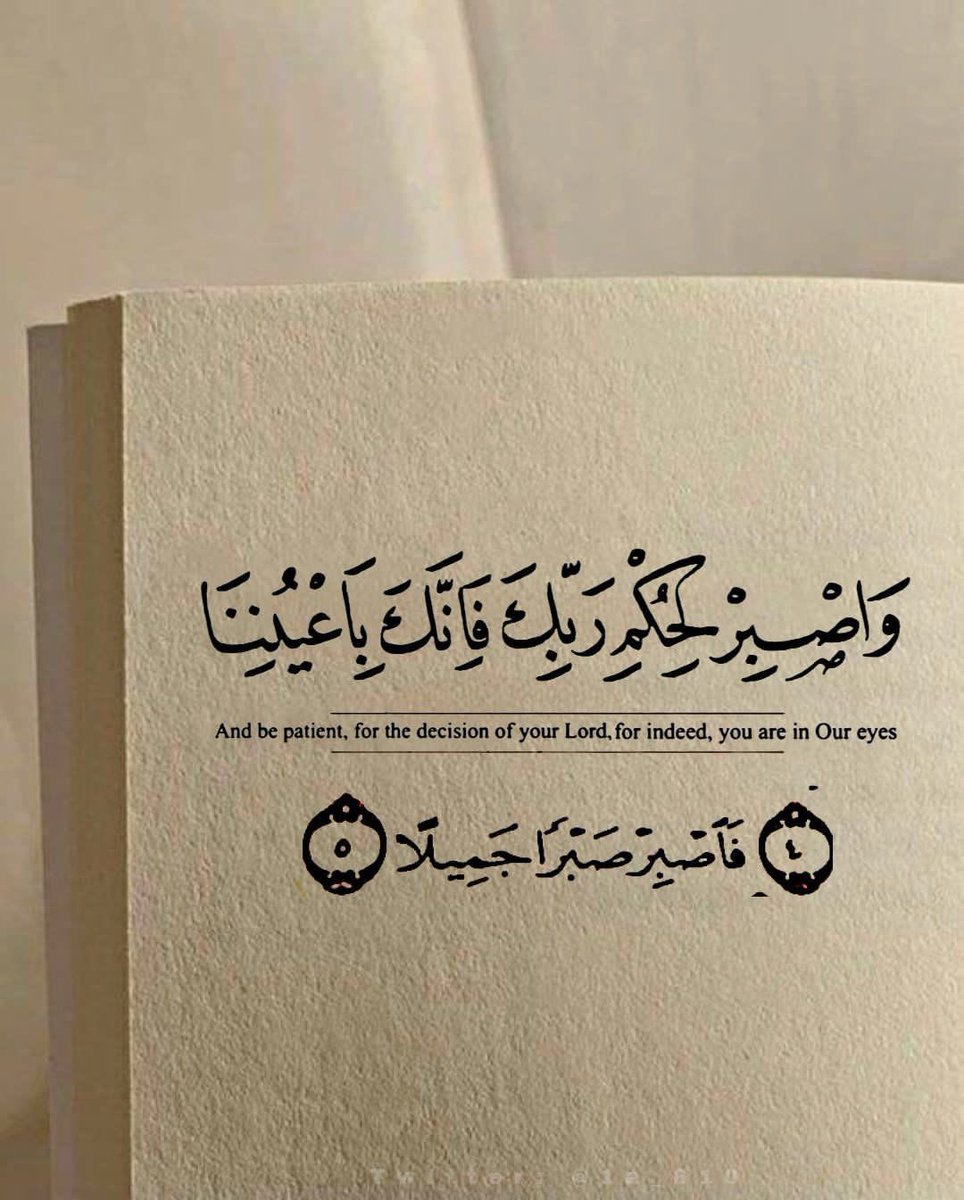 وَاصْبِرْ لِحُكْمِ رَبِّكَ فَاِنَّكَ بِاَعْيُنِنَا
And be patient, for the decision of your Lord, for indeed, you are in Our eyes
٤ فَاَصْبِرْ صَبْرًا جَمِيلًا ٥